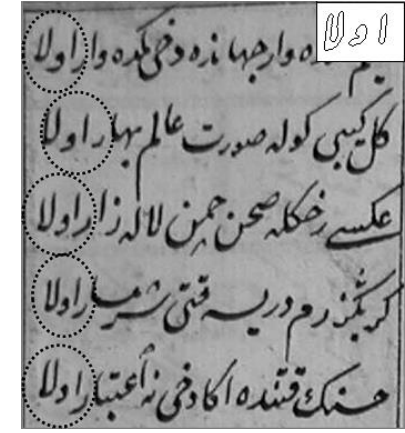 اولا
وار جهانده دخی وار اولا
کل کیبی کوله صورت عالم بهار اولا
عکسی رخکله صحن چمن لاله زار اولا
کر بکزرم دریسه قتی شرمسار اولا
حسنك قتنده اکا دخی نه اعتبار اولا